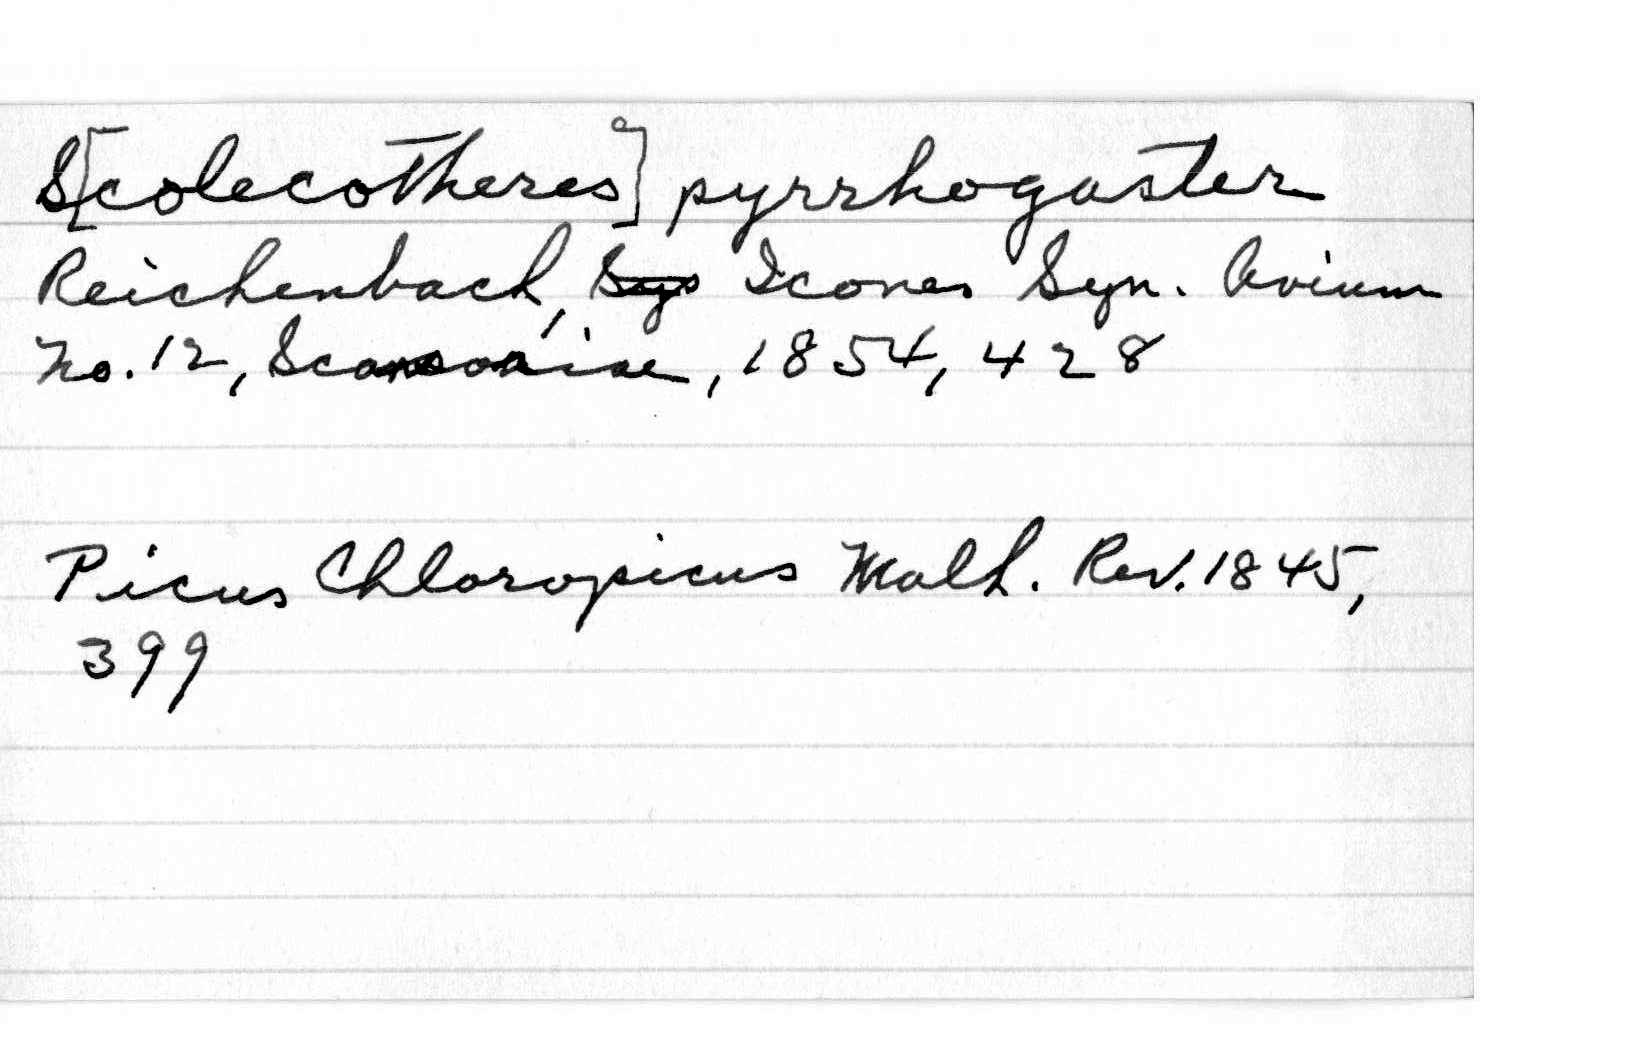 S[colecotheres] pyrrhogaster
Reichenbach, Icones Syn. Avium
No. 12, Scansoriae, 1854, 428
Picus Chloropicus Malh. Rev. 1845,
399